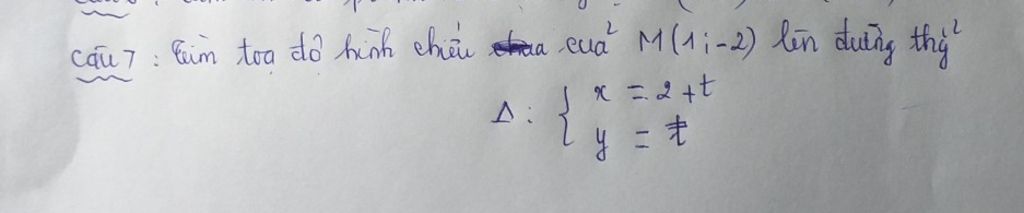 Câu 7 : Tìm toạ độ hình chiếu của M(1;-2) lên đường thg²
Δ: { x = 2+t
y = t